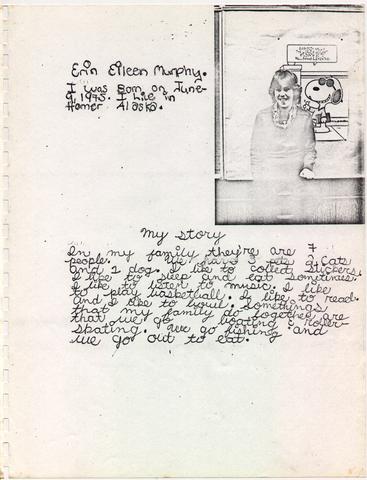 Erin Eileen Murphy.
I was Born on June
9, 1975. I Live in
Homer Alaska.
My story
In my family they're are 7
people. We have 3 pets 2 cats
and 1 dog. I like to collect stickers.
I like to sleep and eat sometimes.
I like to listen to music. I like
to play basketball. I like to read.
and I like to
that my family do together are
that we go boating, roller-
skating. We go fishing and
we go out to eat.